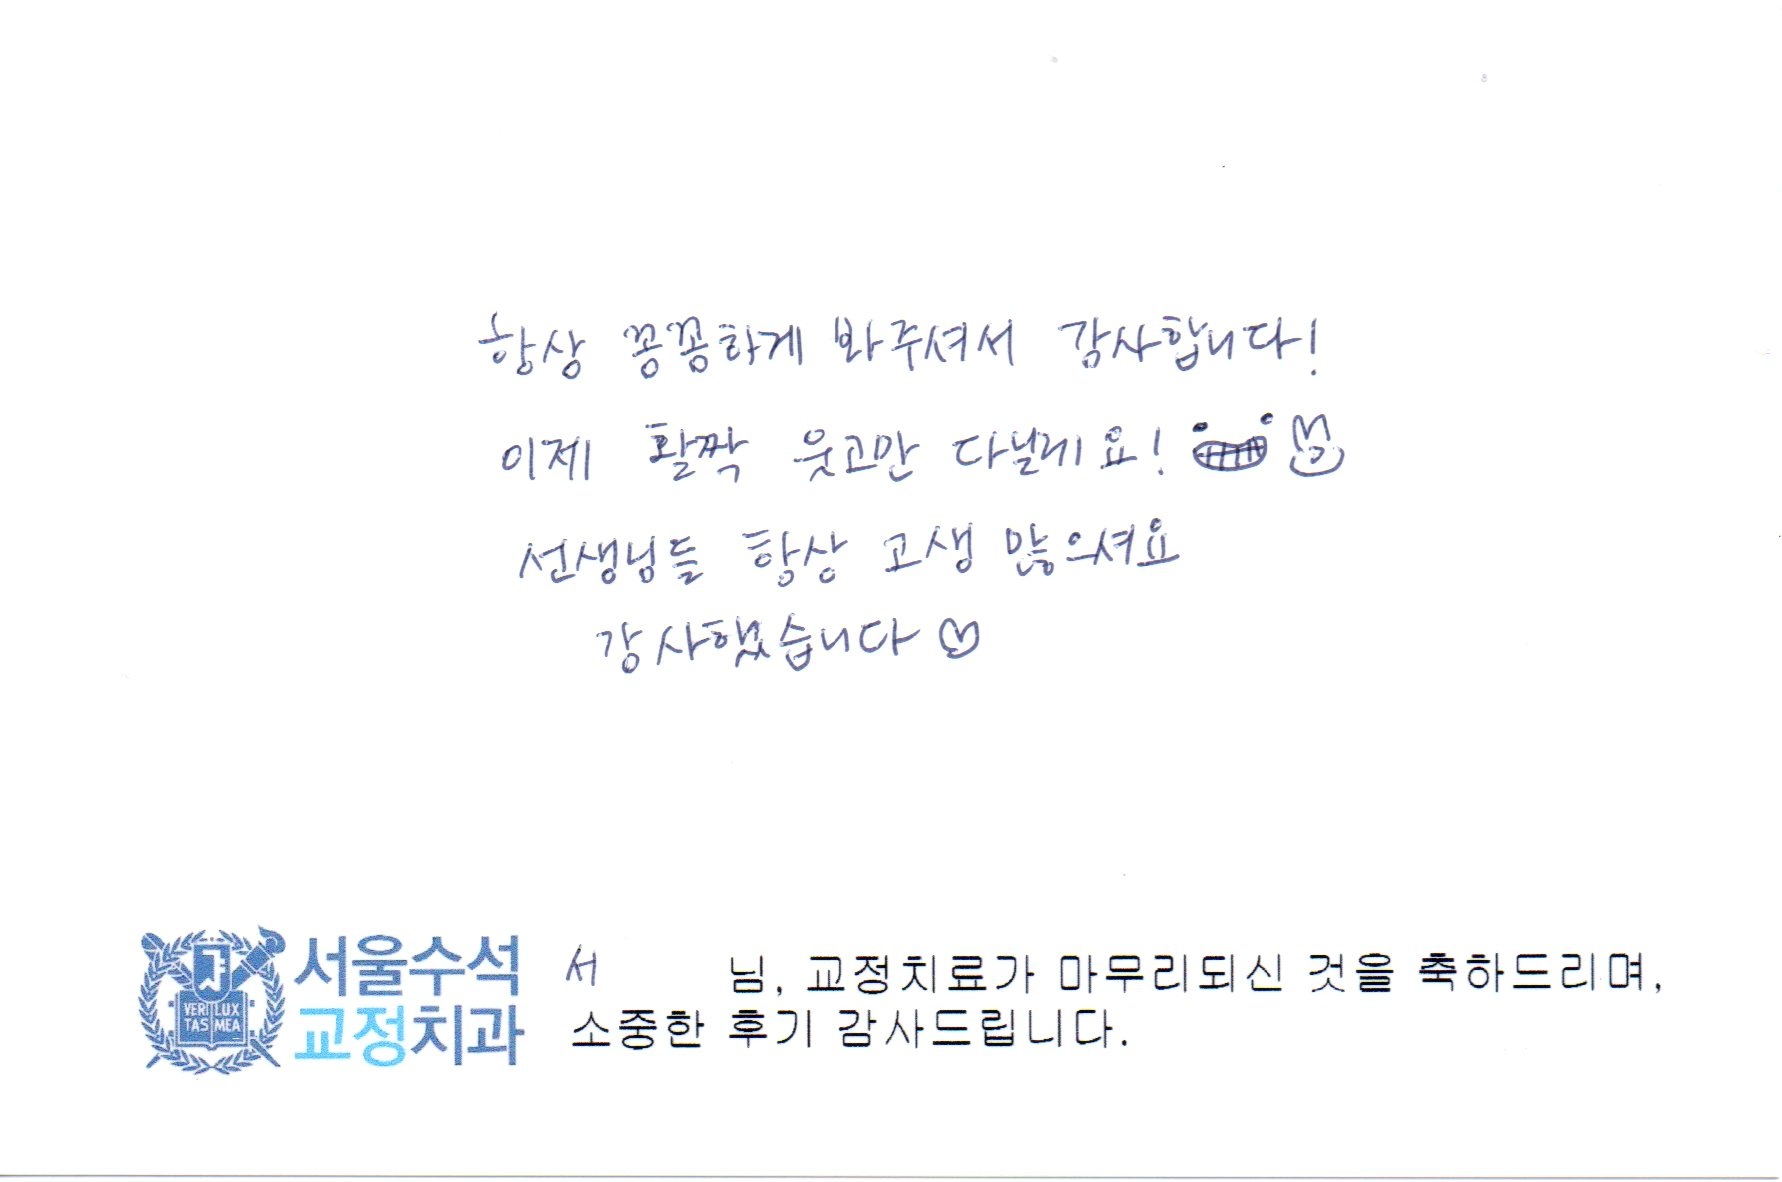 항상 꼼꼼하게 봐주셔서 감사합니다!
이제 활짝 웃고만 다닐레요!
선생님들 항상 고생 많으셔요
감사했습니다♡
VERI LUX
TAS MEA
서울수석
교정치과
서 님, 교정치료가 마무리되신 것을 축하드리며,
소중한 후기 감사드립니다.